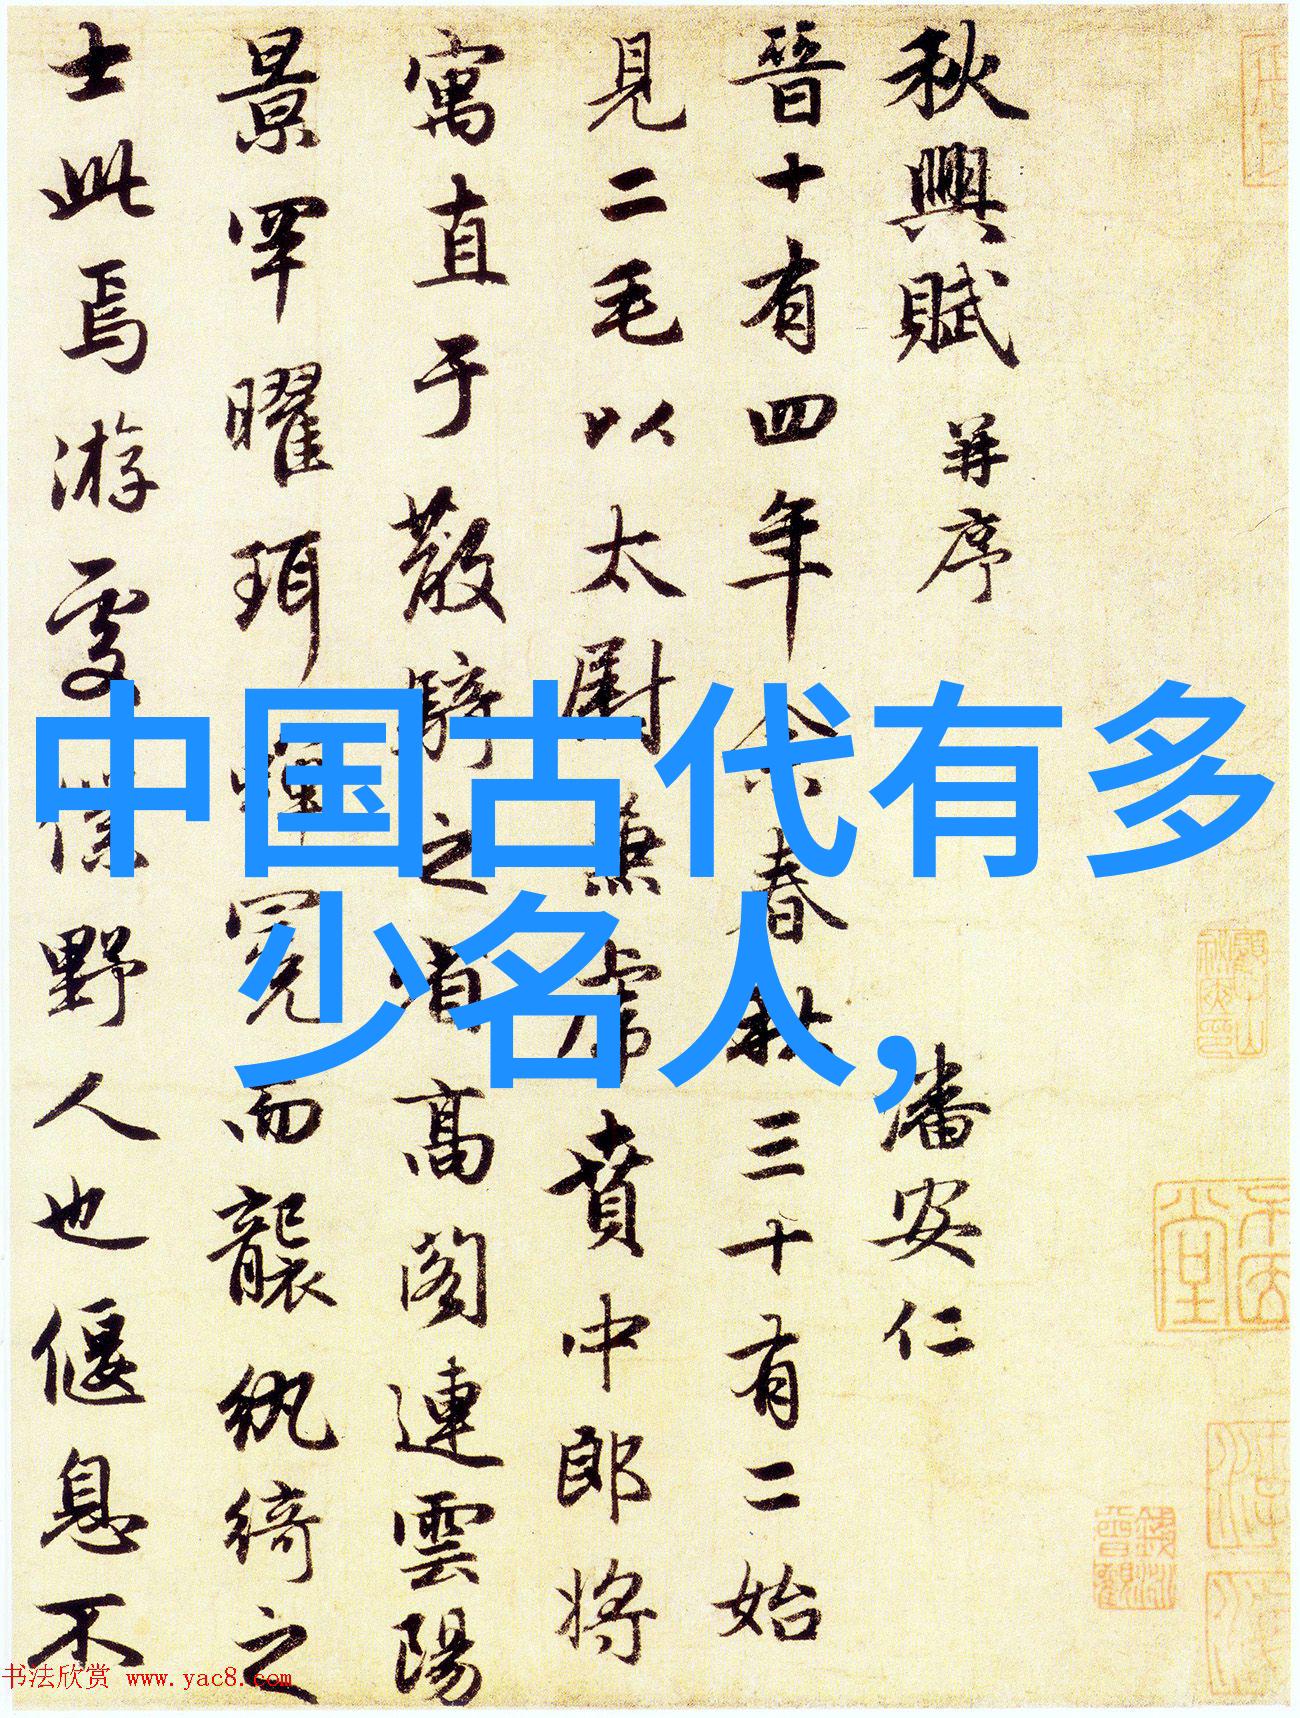 中国古代有多
少名人，
秋興賦 并序 潘安仁
晉十有四年余春秋三十有二始
見二毛以太尉兼虎賁中郎將
寓直于散騎之省高閣連雲陽
景罕曜珥蟬冕而襲紈綺之
士此焉游處僕野人也偃息不
书法欣赏 www.yac8.com